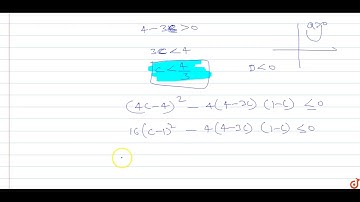 4-3c>0
a>0
3c<4
c<4/3
D<0
(4c-4)² - 4(4-3c) (1-c) ≤0
16(c-1)² - 4(4-3c) (1-c) ≤0